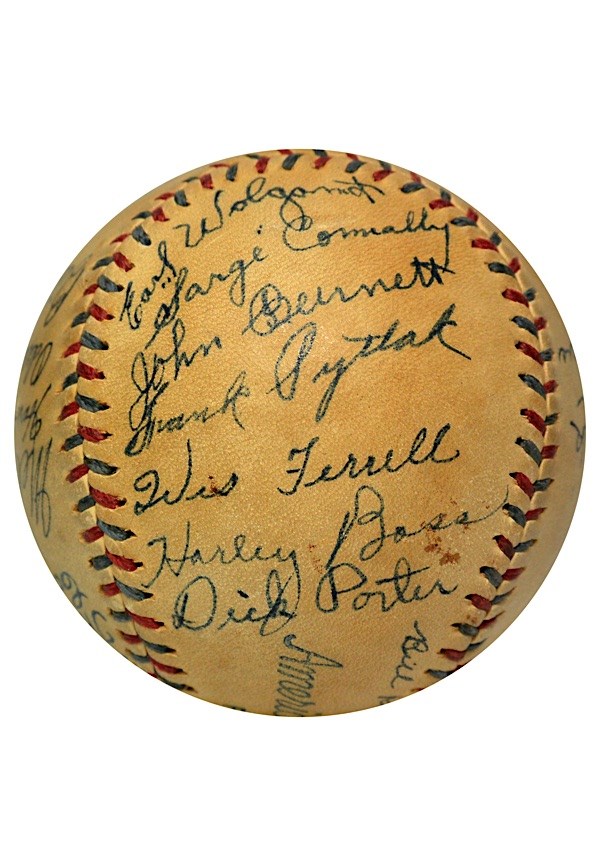 Earl Wolgamot
Sarge Connally
John Burnett
Frank Pytlak
Wes Ferrell
Harley Boss
Dick Porter
Ameri
Bill